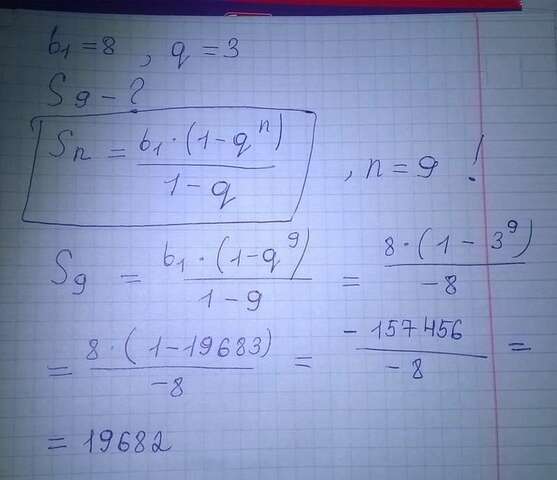 b₁ = 8 , q = 3
S₉ - ?
Sₙ = b₁ · (1 - qⁿ) / 1 - q , n = 9 !
S₉ = b₁ · (1 - q⁹) / 1 - 9 = 8 · (1 - 3⁹) / -8
= 8 · (1 - 19683) / -8 = - 157456 / -8 =
= 19682